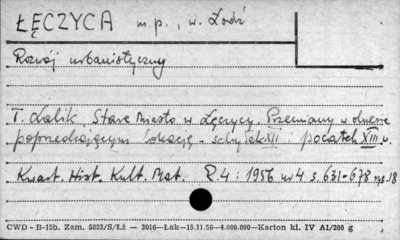 ŁĘCZYCA m.p., w. Łódź
Rozwój urbanistyczny
T. Lalik, Stare Miasto w Łęczycy. Przemiany w okresie
poprzedzającym lokację - schyłek XII i początek XIII w.
Kwart. Hist. Kult. Mat. R.4: 1956 nr 4 s. 631-678 rys. 18
CWD - B-15b. Zam. 5823/S/Łż - 3016-Łak-15.11.50-4.000.000-Karton kl. IV A1/200 g